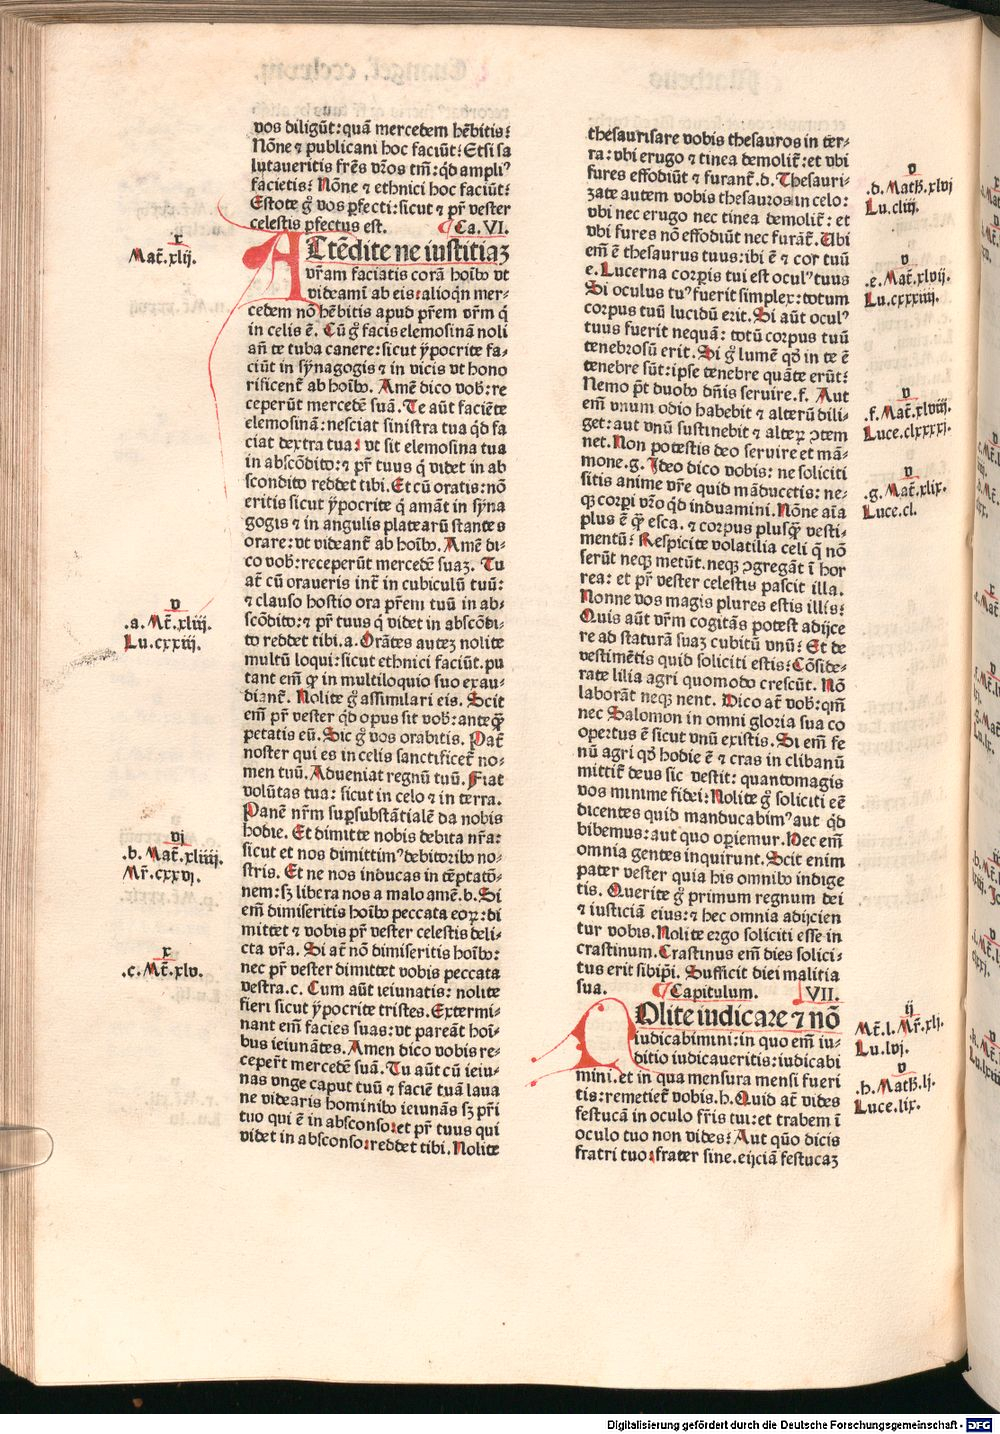 vos diligūt: quā mercedem hēbitis?
Nōne ⁊ publicani hoc faciūt? Etsi sa
lutaueritis frēs vr̄os tm̄: qd̄ ampliꝰ
facietis? Nōne ⁊ ethnici hoc faciūt?
Estote gͦ vos ꝑfecti: sicut ⁊ pr̄ vester
celestis ꝑfectus est. ¶ Ca. VI.
ATtēdite ne iustitiaꝫ
vr̄am faciatis corā hoīb⁹ vt
videamī ab eis: alioq̄n mer-
cedem nō hēbitis apud pr̄em vr̄m q̄
in celis ē. Cū gͦ facis elemosinā noli
an̄ te tuba canere: sicut ypocrite fa-
ciūt in synagogis ⁊ in vicis vt hono
rificent̄ ab hoīb⁹. Amē dico vob̄: re
ceperūt mercedē suā. Te aūt faciēte
elemosinā: nesciat sinistra tua qd̄ fa
ciat dextra tua: vt sit elemosina tua
in abscōdito: ⁊ pr̄ tuus q̄ videt in ab
scondito reddet tibi. Et cū oratis: nō
eritis sicut ypocrite q̄ amāt in syna
gogis ⁊ in angulis platearū stantes
orare: vt videant̄ ab hoīb⁹. Amē di-
co vob̄: receperūt mercedē suaꝫ. Tu
at̄ cū oraueris int̄ in cubiculū tuū:
⁊ clauso hostio ora pr̄em tuū in ab-
scōdito: ⁊ pr̄ tuus q̄ videt in abscōdi-
to reddet tibi. a. Orātes auteꝫ nolite
multū loqui: sicut ethnici faciūt. pu
tant em̄ ꝙ in multiloquio suo exau-
diant̄. Nolite gͦ assimilari eis. Scit
em̄ pr̄ vester qd̄ opus sit vob̄: anteꝙ̄
petatis eū. Sic gͦ vos orabitis. Pat̄
noster qui es in celis sanctificet̄ no-
men tuū. Adueniat regnū tuū. Fiat
volūtas tua: sicut in celo ⁊ in terra.
Panē nr̄m suꝑsubstātialē da nobis
hodie. Et dimitte nobis debita nr̄a:
sicut et nos dimittimꝰ debitorib⁹ no-
stris. Et ne nos inducas in tēptatō-
nem: sꝫ libera nos a malo amē. b. Si
em̄ dimiseritis hoīb⁹ peccata eoꝝ: di
mittet ⁊ vobis pr̄ vester celestis deli-
cta vr̄a. Si at̄ nō dimiseritis hoīb⁹:
nec pr̄ vester dimittet vobis peccata
vestra. c. Cum aūt ieiunatis: nolite
fieri sicut ypocrite tristes. Extermi-
nant em̄ facies suas: vt pareāt hoī-
bus ieiunātes. Amen dico vobis re-
ceper̄t mercedē suaꝫ. Tu aūt cū ieiu-
nas vnge caput tuū ⁊ faciē tuā laua
ne videaris hominib⁹ ieiunās sꝫ pr̄i
tuo qui ē in absconso: et pr̄ tuus qui
videt in absconso: reddet tibi. Nolite
r
Mat̄. xlij.
v
.a. Mt̄. xliij.
Lu. cxxiij.
vj
.b. Mat̄. xliiij.
Mr̄. cxxvj.
r
.c. Mt̄. xlv.
thesaurisare vobis thesauros in ter-
ra: vbi erugo ⁊ tinea demolit̄: et vbi
fures effodiūt ⁊ furant̄. d. Thesauri-
zate autem vobis thesauros in celo:
vbi nec erugo nec tinea demolit̄: et
vbi fures nō effodiūt nec furāt̄. Ubi
em̄ ē thesaurus tuus: ibi ē ⁊ cor tuū
e. Lucerna corꝑis tui est oculꝰ tuus
Si oculus tuꝰ fuerit simplex: totum
corpus tuū lucidū erit. Si aūt oculꝰ
tuus fuerit nequā: totū corpus tuū
tenebrosū erit. Si gͦ lumē qd̄ in te ē
tenebre sūt: ipse tenebre quāte erūt?
Nemo pt̄ duob⁹ dn̄is seruire. f. Aut
em̄ vnum odio habebit ⁊ alterū dili-
get: aut vnū sustinebit ⁊ alteꝝ ꝯtem
net. Non potestis deo seruire et mā-
mone. g. Ideo dico vobis: ne soliciti
sitis anime vr̄e quid māducetis: ne-
qꝫ corꝑi vr̄o qd̄ induamini. Nōne aīa
plus ē ꝙ̄ esca. ⁊ corpus plusꝙ̄ vesti-
mentū? Respicite volatilia celi q̄ nō
serūt neqꝫ metūt. neqꝫ ꝯgregāt ī hor
rea: et pr̄ vester celestis pascit illa.
Nonne vos magis plures estis illis?
Quis aūt vr̄m cogitās potest adijce
re ad staturā suaꝫ cubitū vnū? Et de
vestimētis quid soliciti estis? Cōside-
rate lilia agri quomodo crescūt. Nō
laborāt neqꝫ nent. Dico at̄ vob̄: qm̄
nec Salomon in omni gloria sua co
opertus ē sicut vnū ex istis. Si em̄ fe
nū agri qd̄ hodie ē ⁊ cras in clibanū
mittit̄ deus sic vestit: quantomagis
vos minime fidei? Nolite gͦ soliciti eē
dicentes quid manducabimꝰ aut qd̄
bibemus: aut quo oꝑiemur. Nec em̄
omnia gentes inquirunt. Scit enim
pater vester quia his omnib⁹ indige
tis. Querite gͦ primum regnum dei
⁊ iusticiā eius: ⁊ hec omnia adijcien
tur vobis. Nolite ergo soliciti esse in
crastinum. Crastinus em̄ dies solici-
tus erit sibip̄i. Sufficit diei malitia
sua. ¶ Capitulum. VII.
NOlite iudicare ⁊ nō
iudicabimini: in quo em̄ iu-
ditio iudicaueritis: iudicabi
mini. et in qua mensura mensi fueri
tis: remetiet̄ vobis. h. Quid at̄ vides
festucā in oculo fr̄is tui: et trabem ī
oculo tuo non vides? Aut quo dicis
fratri tuo: frater sine. eijciā festucaꝫ
v
.d. Math̄. xlvj
Lu. cliij.
v
.e. Mat̄. xlvij.
Lu. cxxxiiij.
v
.f. Mat̄. xlviij.
Luce. clxxxxj.
v
.g. Mat̄. xlix.
Luce. cl.
ij
Mt̄. l. Mr̄. xlj.
Lu. lvj.
v
.h. Math̄. lj.
Luce. lix.
Digitalisierung gefördert durch die Deutsche Forschungsgemeinschaft - DFG